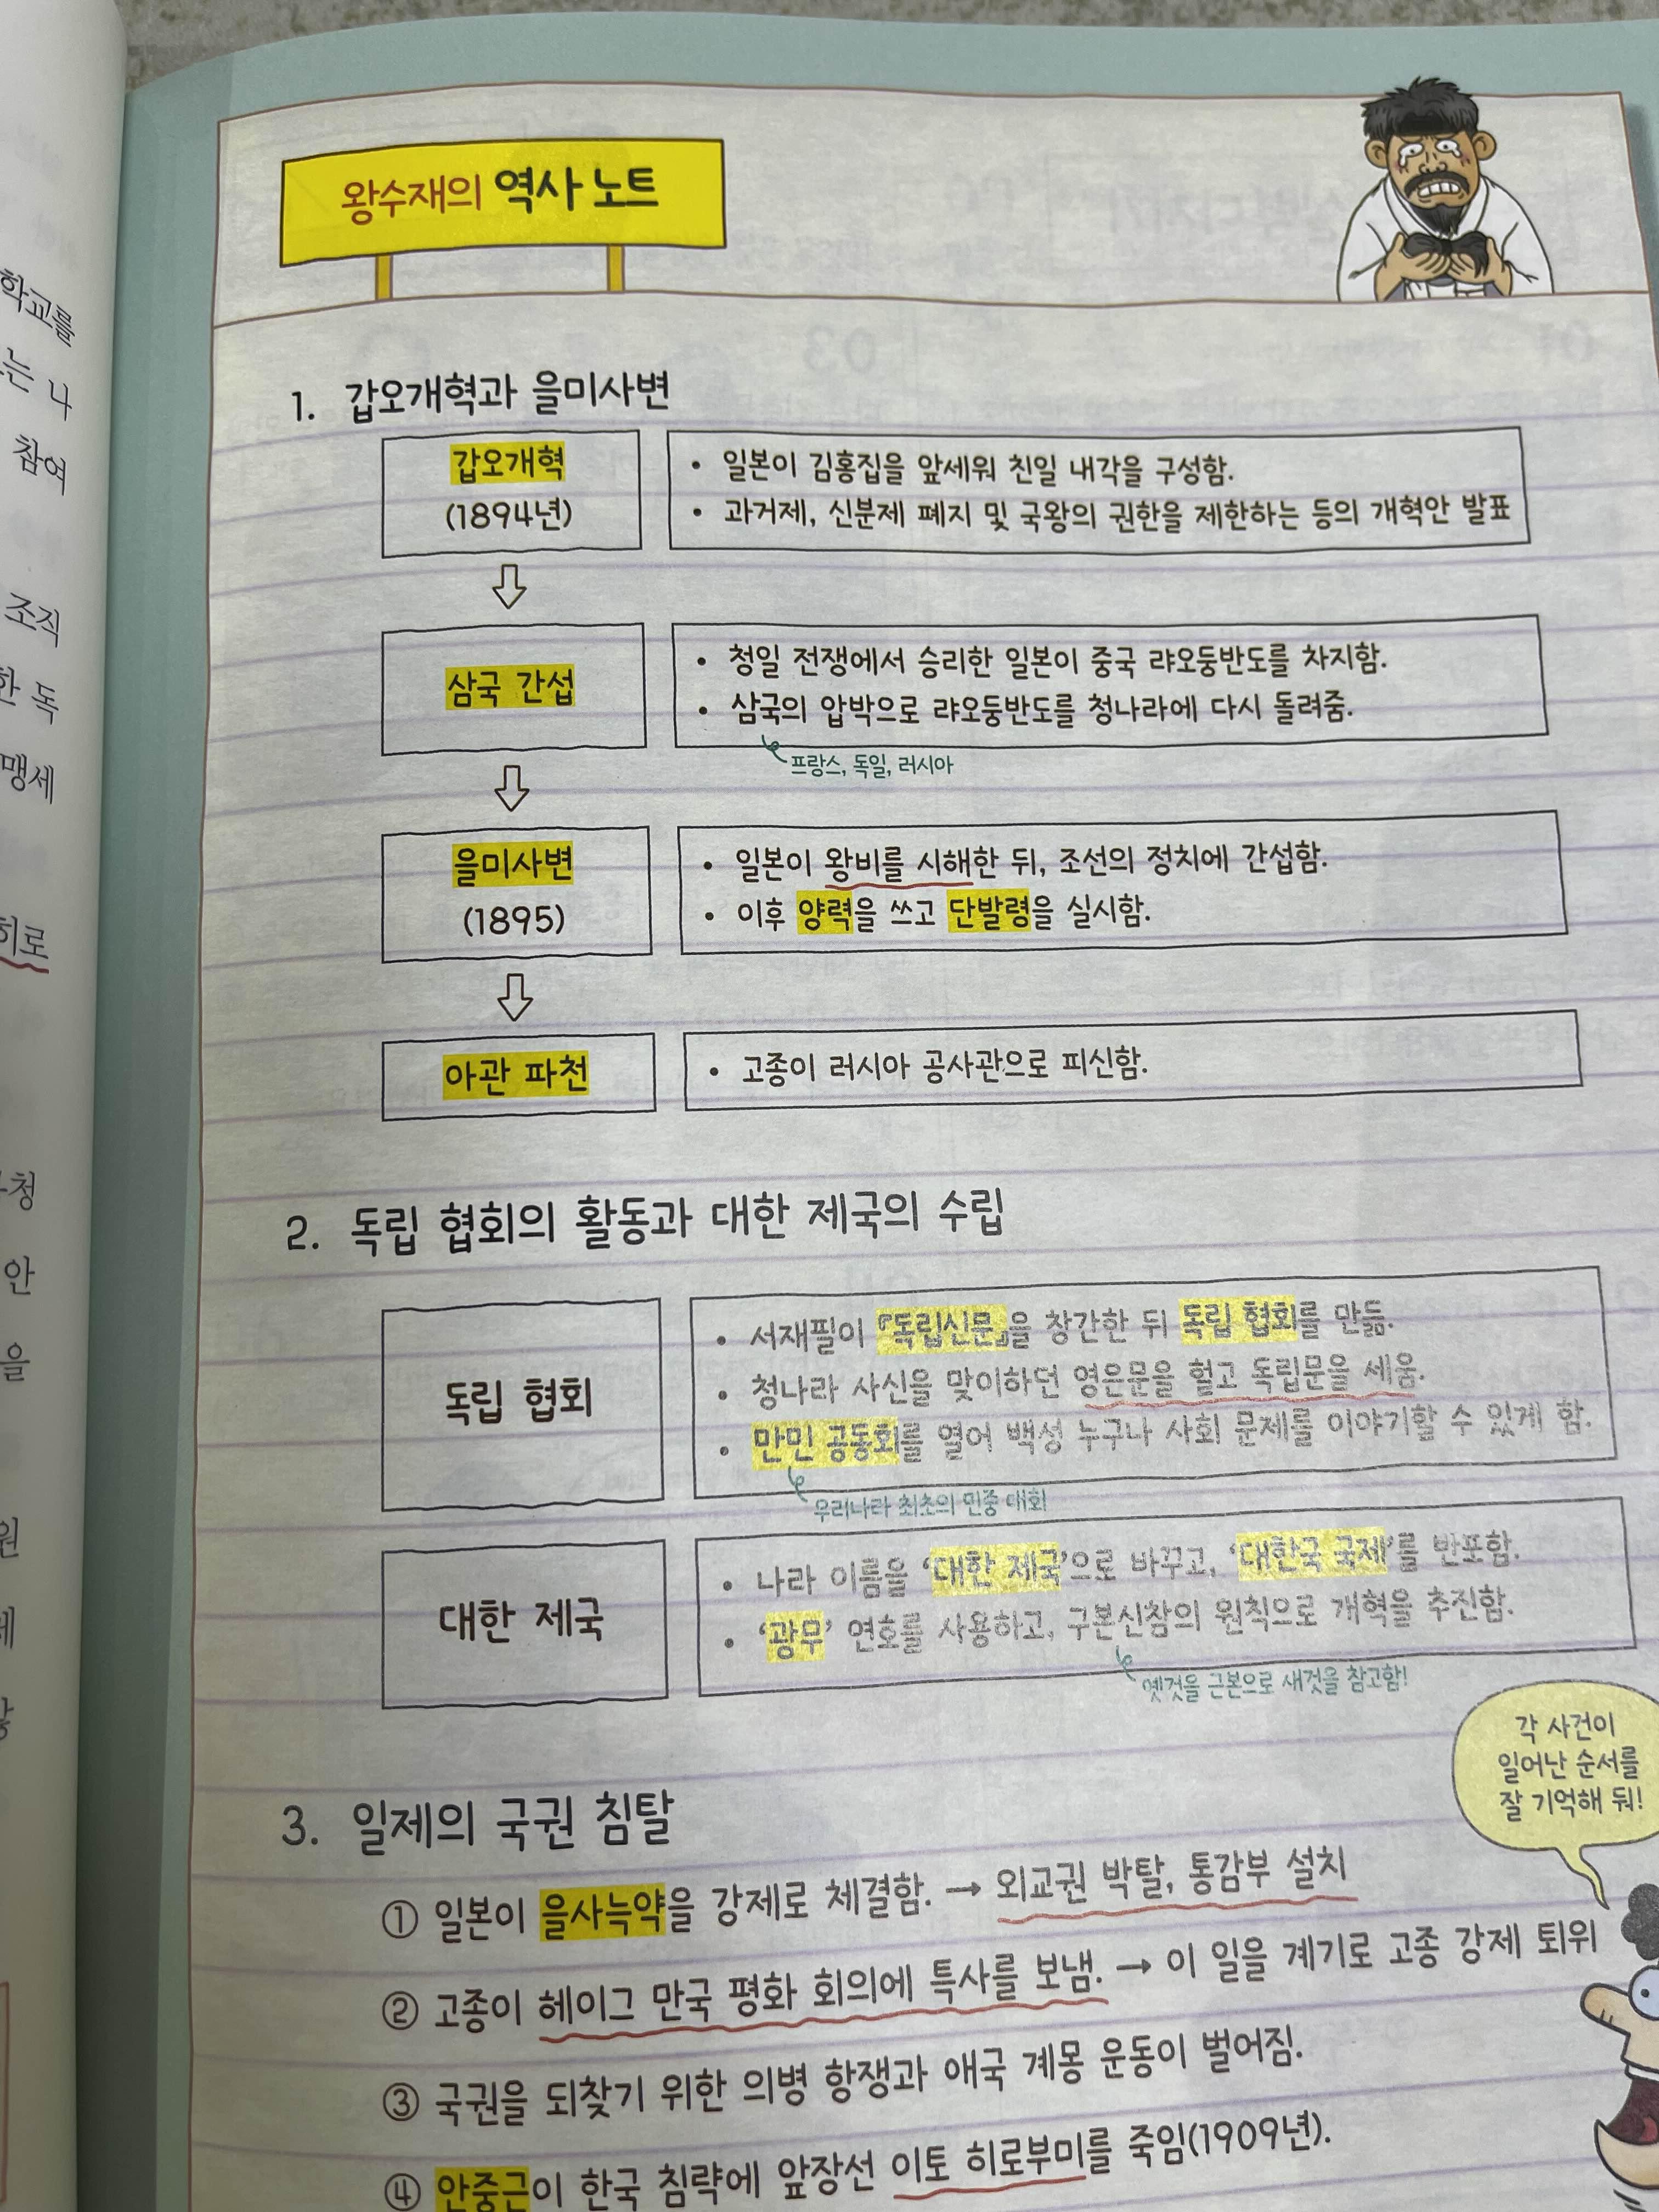 왕수재의 역사 노트
학교를
는 나
참여
조직
한 독
맹세
히로
청
안
을
원
1. 갑오개혁과 을미사변
갑오개혁
(1894년)
• 일본이 김홍집을 앞세워 친일 내각을 구성함.
• 과거제, 신분제 폐지 및 국왕의 권한을 제한하는 등의 개혁안 발표
삼국 간섭
• 청일 전쟁에서 승리한 일본이 중국 랴오둥반도를 차지함.
• 삼국의 압박으로 랴오둥반도를 청나라에 다시 돌려줌.
프랑스, 독일, 러시아
을미사변
(1895)
• 일본이 왕비를 시해한 뒤, 조선의 정치에 간섭함.
• 이후 양력을 쓰고 단발령을 실시함.
아관 파천
• 고종이 러시아 공사관으로 피신함.
2. 독립 협회의 활동과 대한 제국의 수립
독립 협회
• 서재필이 『독립신문』을 창간한 뒤 독립 협회를 만듦.
• 청나라 사신을 맞이하던 영은문을 헐고 독립문을 세움.
• 만민 공동회를 열어 백성 누구나 사회 문제를 이야기할 수 있게 함.
우리나라 최초의 민중 대회
대한 제국
• 나라 이름을 ‘대한 제국’으로 바꾸고, ‘대한국 국제’를 반포함.
• ‘광무’ 연호를 사용하고, 구본신참의 원칙으로 개혁을 추진함.
옛것을 근본으로 새것을 참고함!
각 사건이
일어난 순서를
잘 기억해 둬!
3. 일제의 국권 침탈
① 일본이 을사늑약을 강제로 체결함. → 외교권 박탈, 통감부 설치
② 고종이 헤이그 만국 평화 회의에 특사를 보냄. → 이 일을 계기로 고종 강제 퇴위
③ 국권을 되찾기 위한 의병 항쟁과 애국 계몽 운동이 벌어짐.
④ 안중근이 한국 침략에 앞장선 이토 히로부미를 죽임(1909년).